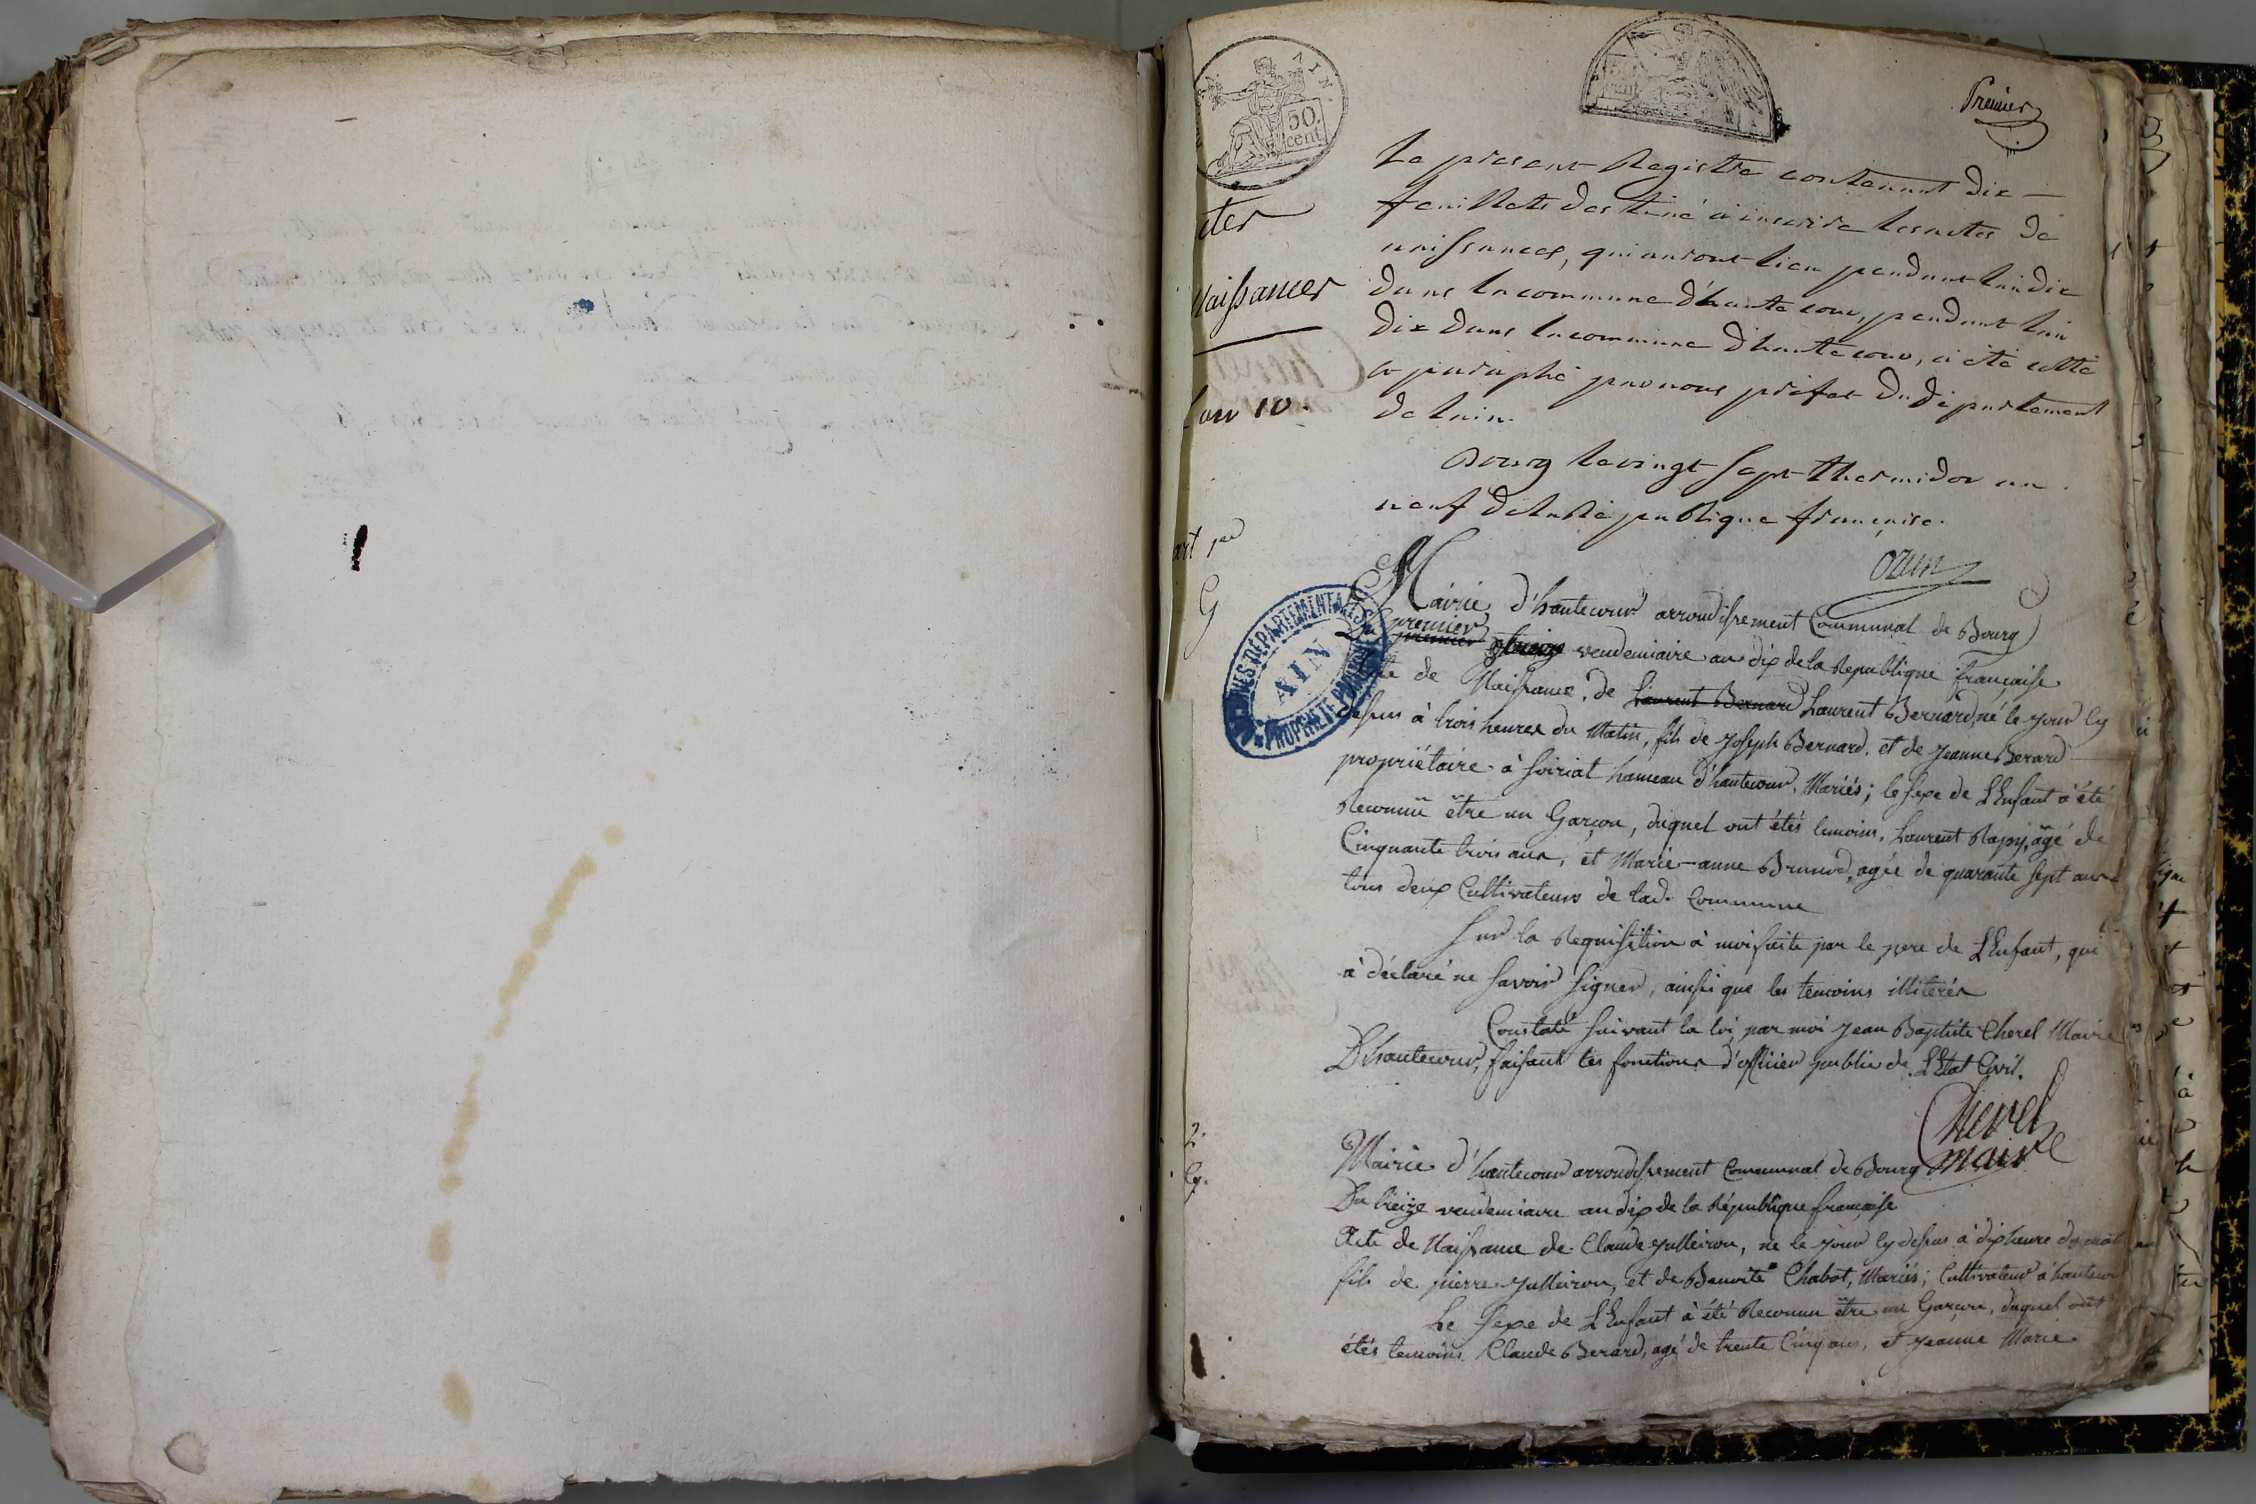 AIN.
50.
cent
Premier
Le present Registre contenant dix
feuillets destiné à inscrire les actes de
naissances, qui auront lieu pendant lan dix
dans la commune d'hautecour, pendant lan
dix dans la commune d'hautecour, a été cotté
et paraphé par nous préfet du département
de lain.
Bourg le vingt sept thermidor an
neuf de la République française.
Ozun
Naissances
10.
Mairie d'hautecour arrondissement Communal de Bourg
Du premier premier vendemiaire an dix de la Republique française
Acte de Naissance, de Laurent Bernard Laurent Bernard, né le jour cy
dessus à trois heures du Matin, fils de Joseph Bernard. et de Jeanne Berard
propriétaire à Soiriat hameau d'hautecour, Mariés; le sexe de L'Enfant à été
Reconnu être un Garçon, duquel ont étés temoins, Laurent Rapy, âgé de
Cinquante trois ans, et Marie-anne Brunod, agée de quarante sept ans
tous deux Cultivateurs de lad. Commune
Sur la Requisition à moi faite par le pere de L'Enfant, qui
à déclaré ne savoir signer, ainsi que les temoins illiterés
Constaté suivant la loi, par moi Jean Baptiste Cherel Maire
D'hautecour, faisant les fonctions d'officier public de L'Etat Civil.
Cherel
maire
ARCHIVES DÉPARTEMENTALES
AIN
PROPRIÉTÉ PUBLIQUE
2.
Mairie d'hautecour arrondissement Communal de Bourg
Du treize vendemiaire an dix de la République française
Acte de Naissance de Claude Julleiron, né le jour cy dessus à dix heure du mat
fils de pierre Julleiron, et de Benoite Chabot, Mariés; Cultivateur à hautecour
Le sexe de L'Enfant à été Reconnu être un Garçon, duquel ont
étés temoins Claude Berard, agé de trente Cinq ans, et Jeanne Marie